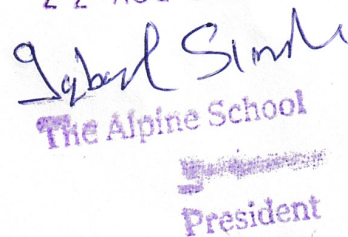 22 AUG
Iqbal Singh
The Alpine School
President